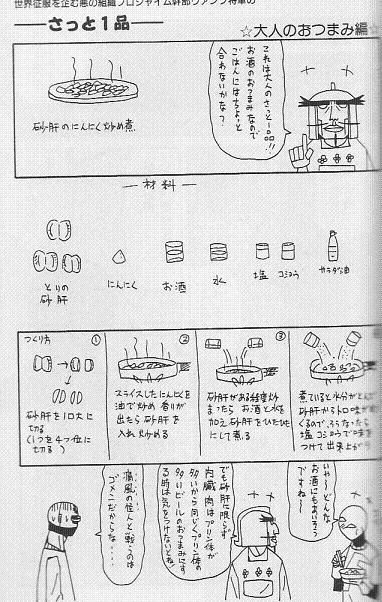 世界征服を企む悪の組織フロシャイム幹部ヴァンプ将軍の
さっと1品
☆大人のおつまみ編☆
これは大人のさっと一品!!
お酒のおつまみなので
ごはんにはちょっと
合わないかな?
砂肝のにんにく炒め煮
材料
とりの
砂肝
にんにく
お酒
水
塩
コショウ
サラダ油
つくり方
①
砂肝を1口大に
切る
(1つを4つ位に
切る)
②
スライスしたにんにくを
油で炒め 香りが
出たら 砂肝を
入れ 炒める
③
砂肝がある程度炒
まったら お酒と水を
加え 砂肝をひたひた
にして煮る
煮ていると水分がとんで
砂肝からトロ味が
くるので、そうなったら
塩 コショウで味を
つけて出来上がり
いや〜どんな
お酒にもあいそう
ですね〜
でも砂肝に限らず
内臓肉はプリン体が
多いから同じくプリン体の
多いビールのおつまみにす
る時は気をつけないとね
痛風の怪人と戦うのは
ゴメンだからな・・・・